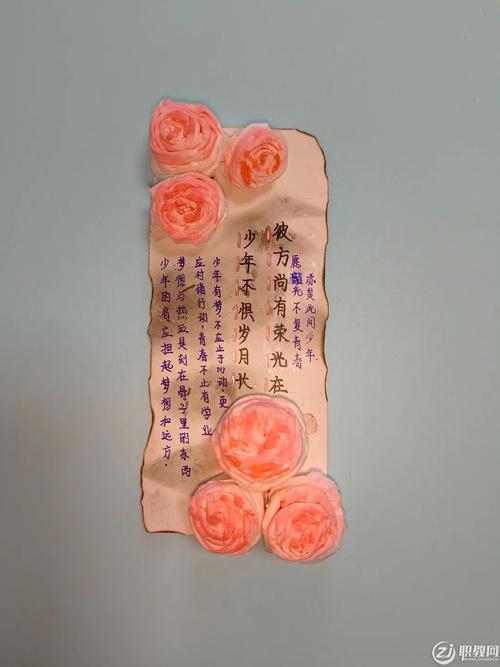 亦是此间少年
愿韶光不复青春
彼方尚有荣光在
少年不惧岁月长
少年有梦,不应止于心动,更
应付诸行动,青春不止有学业
梦想与热血是刻在骨子里的东西
少年的肩应担起梦想和远方.
职教网